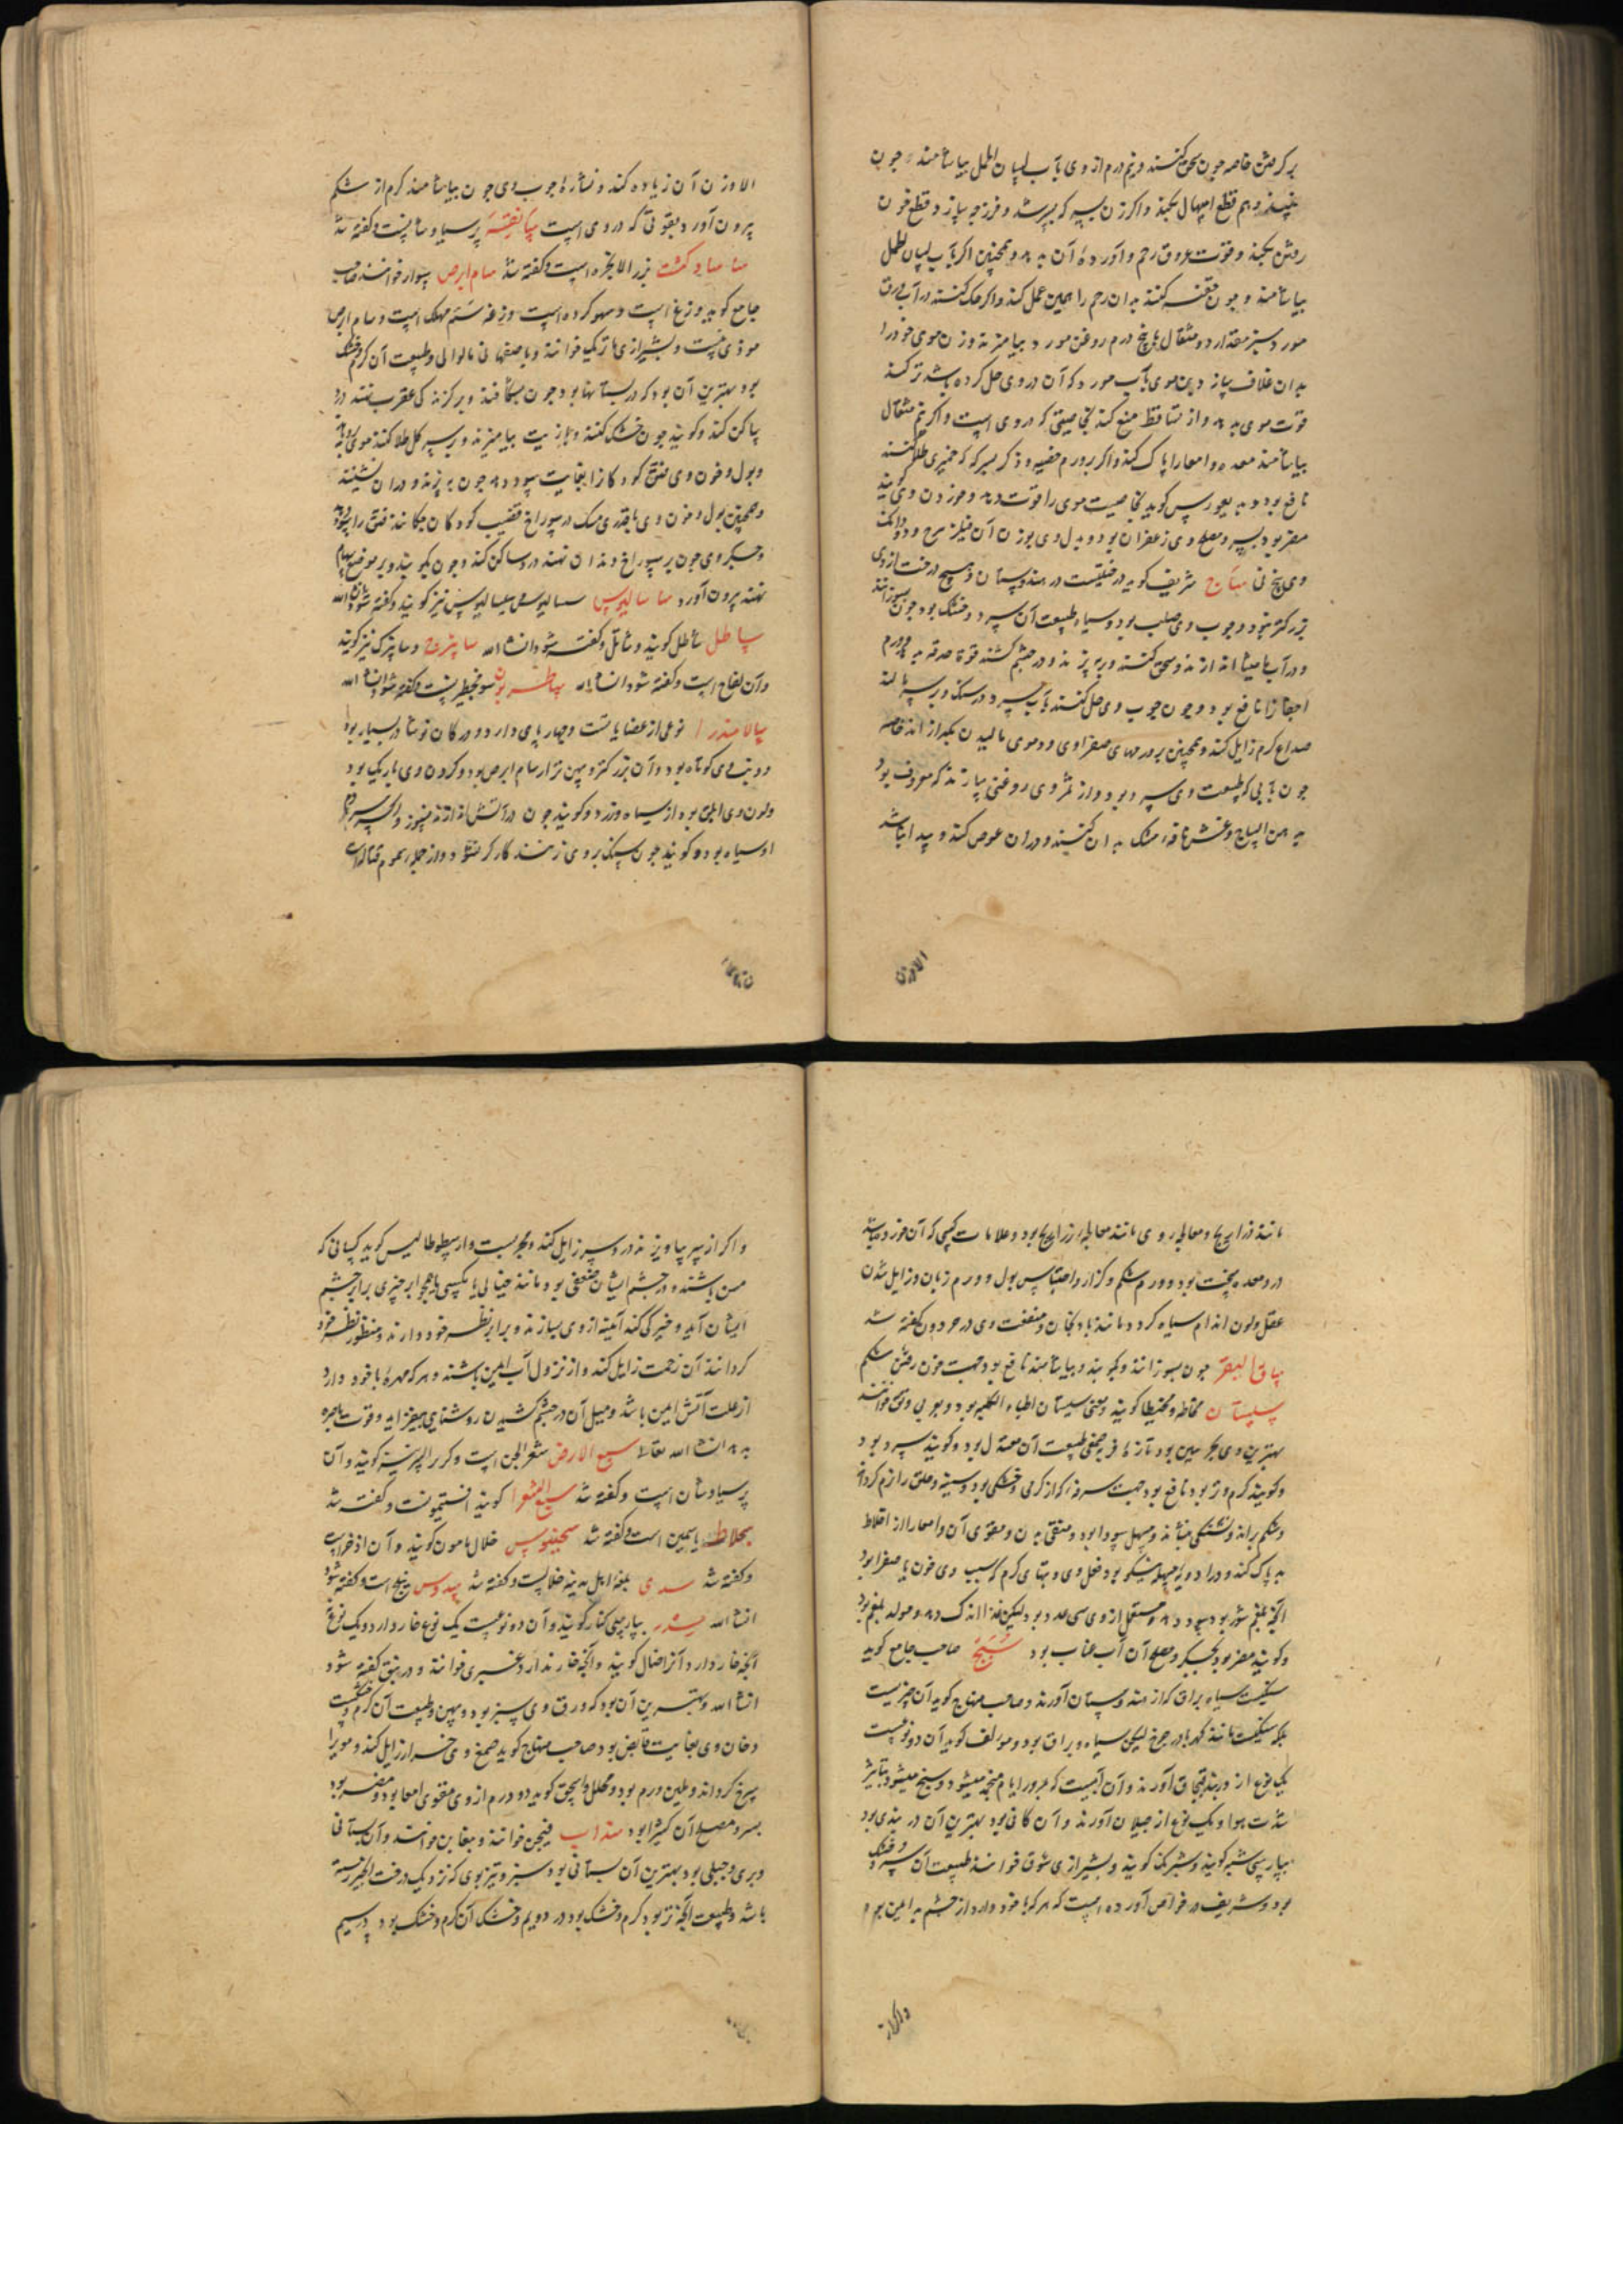 بر کرفتن خاصه چون سحق کنند و نیم درم از وی بآب لسان الحمل بیاشامند و چون
و هم قطع اسهال بکند و اکر زن بسیه که بسرشد و فرزجه سازد و قطع خون
رفتن بکند و قوت عروق رحم و آورده آن بدهد و همچنین اکر بآب لسان الحمل
بیاشامند و چون حقنه کنند بدان رحم را همین عمل کند و اکر حک کنند در آب ورق
مورد سبز مقدار دو مثقال با پنج درم روغن مورد بیامیزند و زن موی خود را
بدان غلاف سازد و بن موی بآب مورد که آن در وی حل کرده باشد تر کند
قوت موی بدهد و از تساقط منع کند بخاصیتی که در وی است و اکر نیم مثقال
بیاشامند معده و امعا را پاک کند و اکر بر ورم خصیه و ذکر بسرکه که خمیری طلا کنند
نافع بود و دیعوریس کوید بخاصیت موی را قوت دهد و خوردن وی کویند
مضر بود بسپرز و مصلح وی زعفران بود و بدل وی بوزن آن فیلزهرج و دو دانک
وی پنج نی ساج شریف کوید درختیست در هندوستان و هیچ درخت از وی
بزرکتر نبود و چوب وی صلب بود و سیاه و طبیعت آن سرد و خشک بود چون بسوزانند
و در آب مامیثا اندازند و سحق کنند و بپزند و در چشم کشند قوة حدقه بدهد و ورم
اجفان را نافع بود و چون چوب وی حل کنند بآب سرد در سنک و بر سر مالند
صداع کرم زایل کند و همچنین بر ورمهای صفراوی و دموی مالیدن بکدازاند خاصه
چون بآبی که طبیعت وی سرد بود و از ثمر وی روغنی سازند که معروف بود
به دهن الساج و غش نافه مشک بدان کنند و در آن غوص کند و پیدا نباشد
الاوزن
الا وزن آن زیاده کند و نشاره چوب وی چون بیاشامند کرم از شکم
بیرون آورد بقوتی که در وی است سانقیسه پرسیاوشانست و کفته شد
ساسادکشت بزر الانجره است و کفته شد سام ابرص سوار خوانند صاحب
جامع کوید وزغ است و سهو کرده است وزغه سم مهلک است و سام ابرص
موذی نیست و بشیرازی باترنک خوانند و باصفهانی مالوالی و طبیعت آن کرم و خشک
بود بهترین آن بود که در بستانها بود چون بشکافند و بر کزند کی عقرب نهند درد
ساکن کند و کویند چون خشک کنند و با زیت بیامیزند و بر سر کل طلا کنند موی برویاند
و بول و خون وی فتق کودکان را بغایت سود دهد چون بپزند و در آن نشینند
و همچنین بول و خون وی با قدری مسک در سوراخ قضیب کودکان چکانند فتق را سود دهد
و جکر وی چون بر سوراخ دندان نهند درد ساکن کند و چون بکوبند و بر موضع سهام
نهند بیرون آورد ساسالیوس سسالیوس و سیسالیوس نیز کویند و کفته شود انشاالله
ساطل شاطل کویند و شاتل و کفته شود انشاالله سابیزج و سابیزک نیز کویند
و آن لفاح است و کفته شود انشاالله ساطریون سوتخیطرست و کفته شود انشاالله
سالامندرا نوعی از عضایا تست و چهار پای دارد و در کان نوشادر بسیار بود
و دنب وی کوتاه بود و آن بزرکتر و پهن تر از سام ابرص بود و کردن وی باریک بود
ولون وی ابلق بود از سیاه و زرد و کویند چون در آتش اندازند نسوزد و اکر چه سر و دم
او سیاه بود و کویند چون سنک بر وی زنند کار کر نشود و از جمله سموم قتاله است
مانند ذراریح و معالجه وی مانند معالجه ذراریح بود و علامات کسی که آن خورده باشد
درد معده سخت بود و ورم شکم و کزاز و احتباس بول و ورم زبان و زایل شدن
عقل و لون اندام سیاه کردد مانند بادنجان و منفعت وی در حردون کفته شد
ساق البقر چون بسوزانند و بکوبند و بیاشامند نافع بود جهت خون رفتن شکم
سپستان مخاطه و مخیطا کویند و معنی سپستان اطباء الکلبه بود و بعربی دبق خوانند
بهترین وی بحرینی بود تازه فربه صمغی طبیعت آن معتدل بود و کویند سرد بود
و کویند کرم و تر بود نافع بود جهت سرفه که از کرمی و خشکی بود و سینه و حلق را نرم کرداند
و شکم براند و تشنکی بنشاند و مسهل سودا بود و منقی بدن و مقوی آن و امعا را از اخلاط
بد پاک کند و در ادویه مسهله نیکو بود فعل وی و تبهای کرم که سبب وی خون یا صفرا بود
آنچه بلغم شور بود سود دهد و مستعمل از وی سی عدد بود لیکن غذا اندک دهد و مولد بلغم بود
و کویند مضر بود بجکر و مصلح آن آب عناب بود سبج صاحب جامع کوید
سنکیست سیاه براق که از هندوستان آورند و صاحب منهاج کوید آن چیزیست
بلکه سنکیست مانند کهربا در چرخ لیکن سیاه و براق بود و مؤلف کوید آن دو نوعست
یک نوع از دربند قبجاق آورند و آن آبیست که بمرور ایام منجمد میشود و سبج میشود بتأثیر
شدت هوا و یک نوع از جیلان آورند و آن کانی بود بهترین آن در بندی بود
بپارسی شبه کویند و شبرنک کویند و بشیرازی شوق خوانند طبیعت آن سرد و خشک
بود و شریف در خواص آورده است که هر که با خود دارد از چشم بد ایمن بود
و اکر از
و اکر از سر بیاویزند درد سر زایل کند و مجربست و ارسطوطالیس کوید کسانی که
مسن باشند و در چشم ایشان ضعفی بود و مانند خیالی یا مکسی یا همچو ابر چیزی برابر چشم
ایشان آید و خیر کی کند آیینه از وی بسازند و برابر نظر خود دارند و منظور نظر خود
کردانند آن زحمت زایل کند و از نزول آب ایمن باشند و هر که مهره با خود دارد
از علت آتش ایمن باشد و میل آن در چشم کشیدن روشنایی بیفزاید و قوت باصره
بدهد انشا الله تعالی سبع الارض شعر الجن است و کزبرة البیر نیز کویند و آن
پرسیاوشان است و کفته شد سبع الشعرا کویند افتیمونست و کفته شد
سجلاط یاسمین است و کفته شد سجنیوس خلال مامون کویند و آن اذخرست
و کفته شد سدی بلغه اهل مدینه خلالست و کفته شد سدوس نیلج است و کفته شود
انشا الله سدر بپارسی کنار کویند و آن دو نوعیست یک نوع خار دارد و یک نوع نه
آنچه خار دارد آنرا ضال کویند و آنچه خار ندارد عبری خوانند و در نبق کفته شود
انشا الله و بهترین آن بود که ورق وی سبز بود و پهن و طبیعت آن کرم و خشکست
دخان وی بغایت قابض بود صاحب منهاج کوید صمغ وی حزاز زایل کند و مو را
سرخ کرداند و ملین ورم بود و محلل و اسحق کوید دو درم از وی مقوی امعا بود و مضر بود
بسر و مصلح آن کثیرا بود سداب فیجن خوانند و بیغابن خوانند و آن بستانی
و بری و جبلی بود بهترین آن بستانی بود سبز و تیز بوی که نزدیک درخت انجیر رسته
باشد و طبیعت آنچه تر بود کرم و خشک بود در دویم و خشک آن کرم و خشک بود در سیم